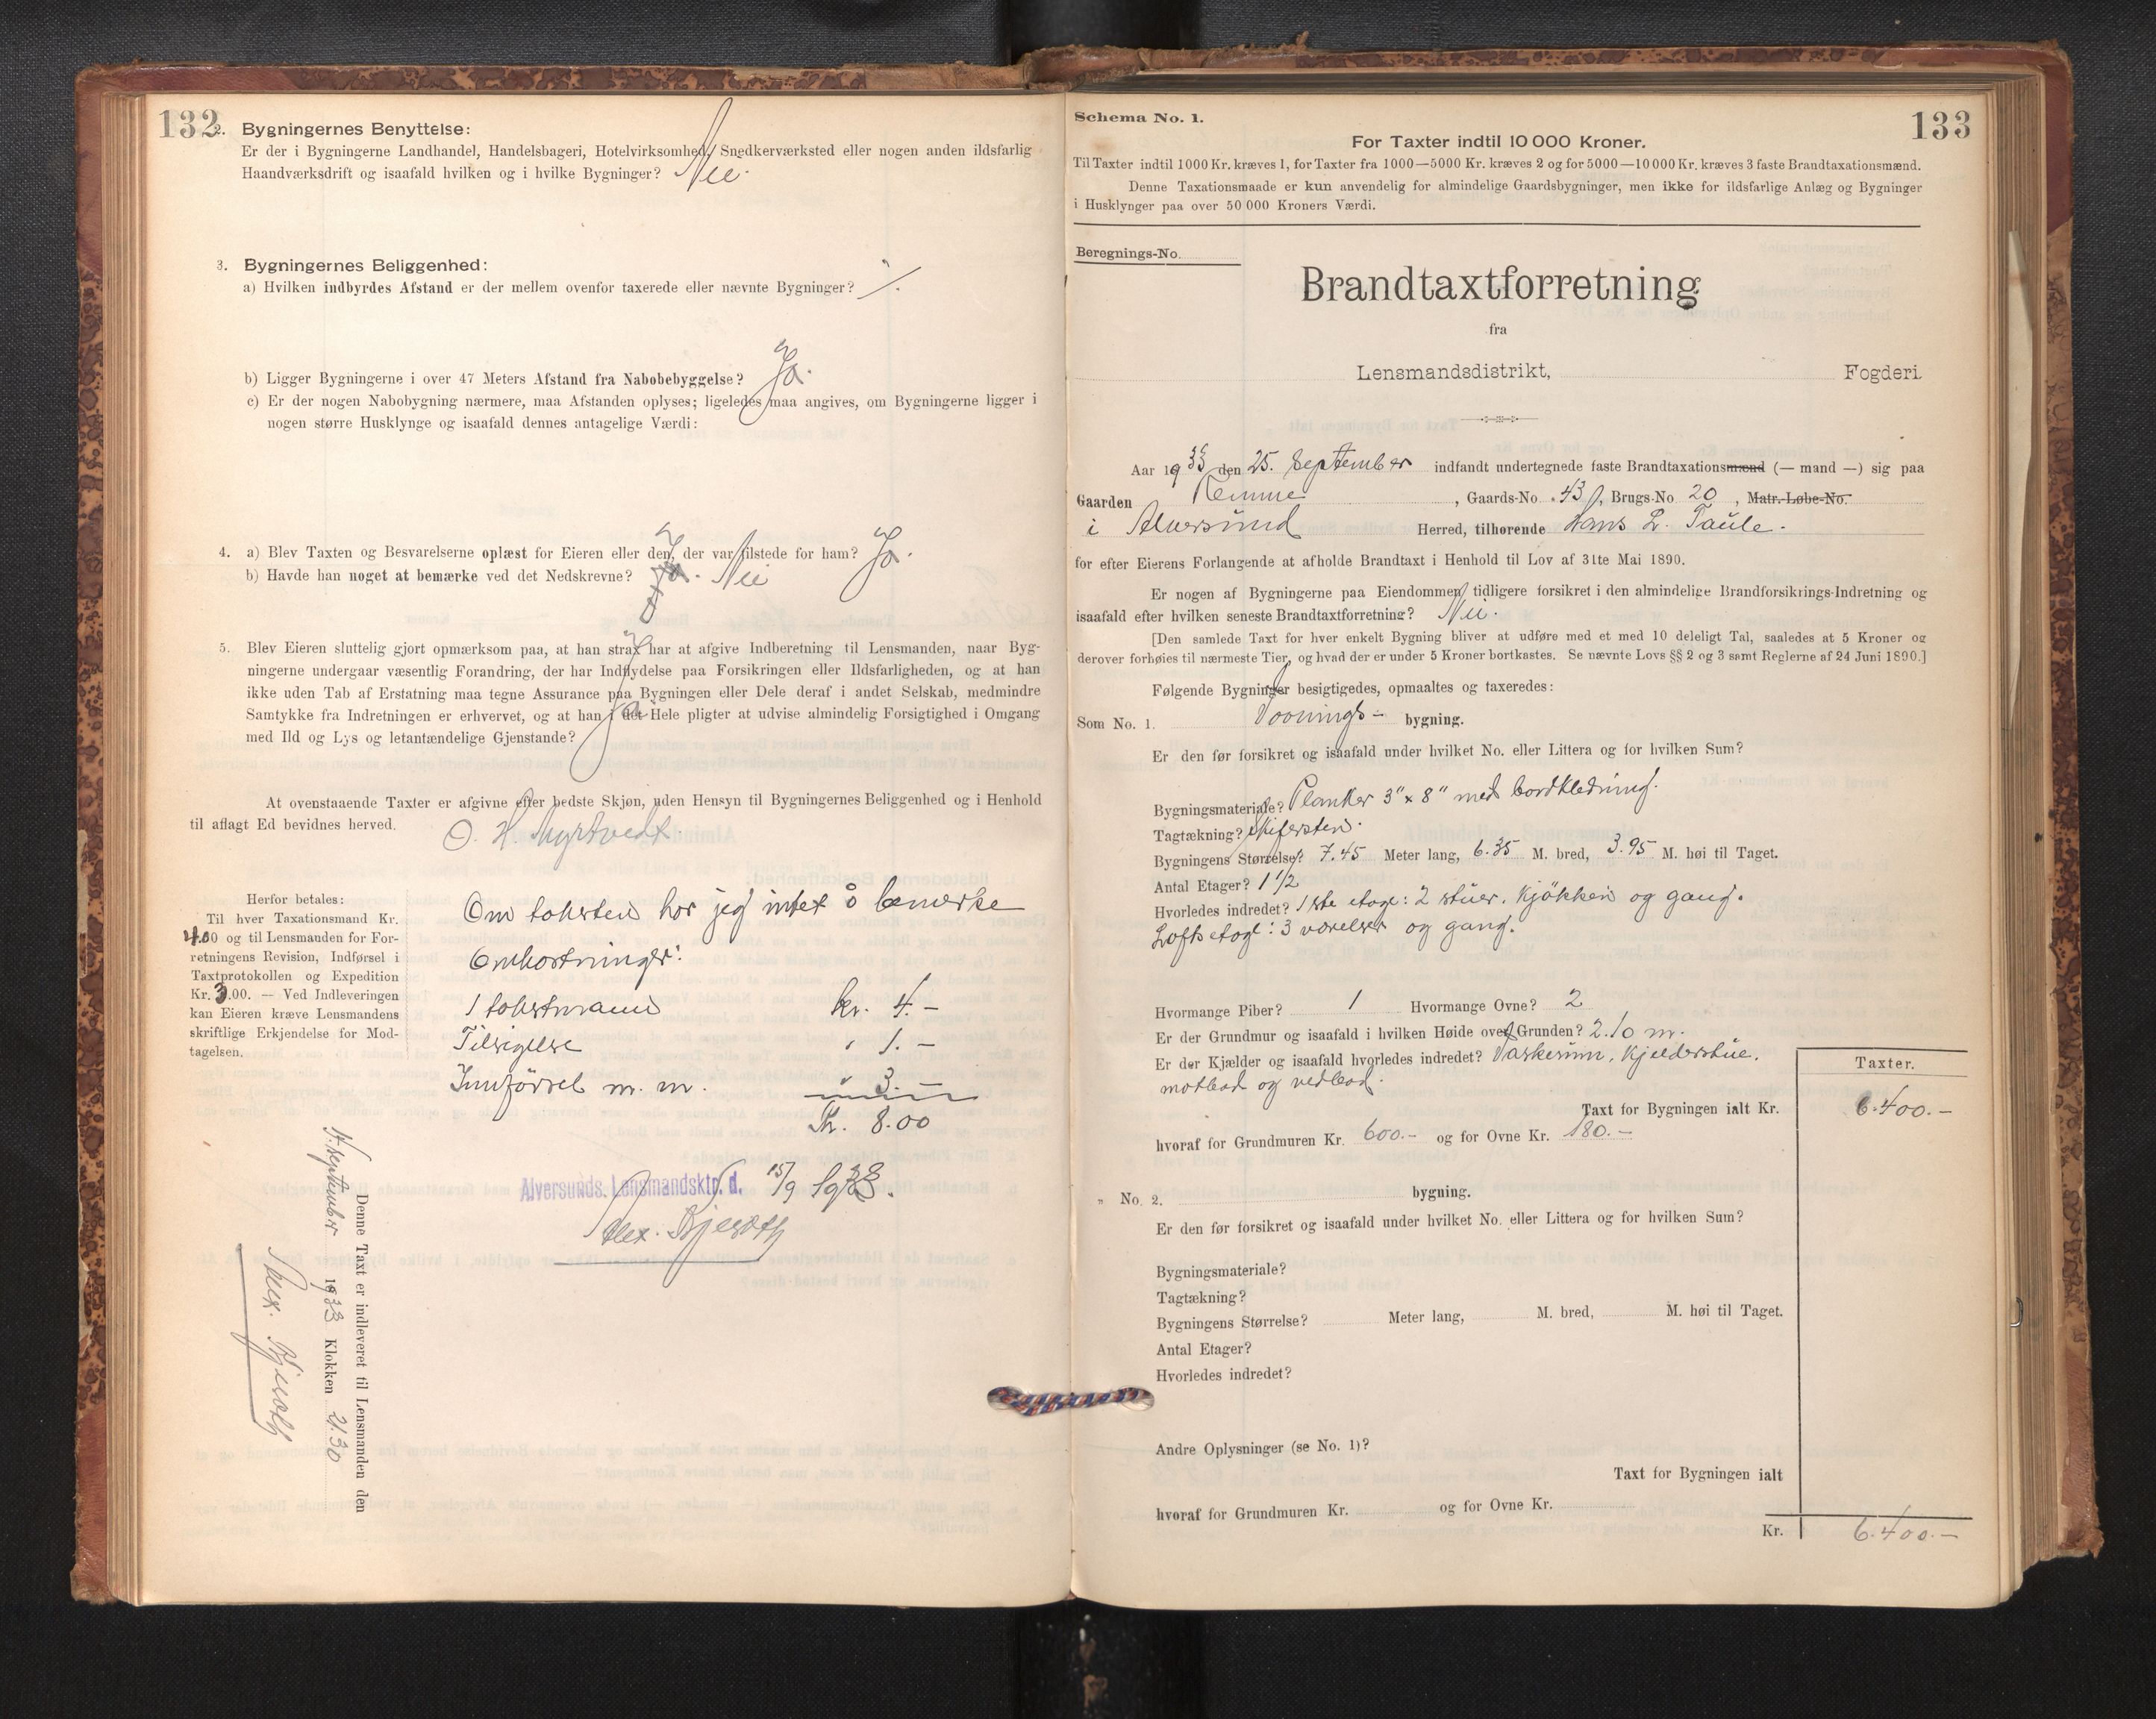 132
2. Bygningernes Benyttelse:
Er der i Bygningerne Landhandel, Handelsbageri, Hotelvirksomhed, Snedkerværksted eller nogen anden ildsfarlig
Haandværksdrift og isaafald hvilken og i hvilke Bygninger? Nei.
3. Bygningernes Beliggenhed:
a) Hvilken indbyrdes Afstand er der mellem ovenfor taxerede eller nævnte Bygninger?
b) Ligger Bygningerne i over 47 Meters Afstand fra Nabobebyggelse? Ja.
c) Er der nogen Nabobygning nærmere, maa Afstanden oplyses; ligeledes maa angives, om Bygningerne ligger i
nogen større Husklynge og isaafald dennes antagelige Værdi:
4. a) Blev Taxten og Besvarelserne oplæst for Eieren eller den, der var tilstede for ham? Ja.
b) Havde han noget at bemærke ved det Nedskrevne? Ja. Nei
5. Blev Eieren sluttelig gjort opmærksom paa, at han strax har at afgive Indberetning til Lensmanden, naar Byg-
ningerne undergaar væsentlig Forandring, der har Indflydelse paa Forsikringen eller Ildsfarligheden, og at han
ikke uden Tab af Erstatning maa tegne Assurance paa Bygningen eller Dele deraf i andet Selskab, medmindre
Samtykke fra Indretningen er erhvervet, og at han i det Hele pligter at udvise almindelig Forsigtighed i Omgang
med Ild og Lys og letantændelige Gjenstande? Ja
At ovenstaaende Taxter er afgivne efter bedste Skjøn, uden Hensyn til Bygningernes Beliggenhed og i Henhold
til aflagt Ed bevidnes herved.
O. H. Myrtvedt.
Herfor betales:
Til hver Taxationsmand Kr.
4.00 og til Lensmanden for For-
retningens Revision, Indførsel i
Taxtprotokollen og Expedition
Kr. 3.00. — Ved Indleveringen
kan Eieren kræve Lensmandens
skriftlige Erkjendelse for Mod-
tagelsen.
Om taksten har jeg intet å bemerke
Omkostninger:
1 takstmann kr. 4.-
Tilsigelse " 1.-
Innførsel m. m. " 3.-
Kr. 8.00
Alversunds Lensmandsktr. d. 15/9 1933.
Denne Taxt er indleveret til Lensmanden den
september 1933 Klokken 21.30
133
Schema No. 1.
For Taxter indtil 10 000 Kroner.
Til Taxter indtil 1000 Kr. kræves 1, for Taxter fra 1000—5000 Kr. kræves 2 og for 5000—10000 Kr. kræves 3 faste Brandtaxationsmænd.
Denne Taxationsmaade er kun anvendelig for almindelige Gaardsbygninger, men ikke for ildsfarlige Anlæg og Bygninger
i Husklynger paa over 50 000 Kroners Værdi.
Beregnings-No.
Brandtaxtforretning
fra
Lensmandsdistrikt, Fogderi.
Aar 1933 den 25. September indfandt undertegnede faste Brandtaxationsmænd (— mand —) sig paa
Gaarden Remme, Gaards-No. 43, Brugs-No 20, Matr.-Løbe-No.
i Alversund Herred, tilhørende Hans L. Taule.
for efter Eierens Forlangende at afholde Brandtaxt i Henhold til Lov af 31te Mai 1890.
Er nogen af Bygningerne paa Eiendommen tidligere forsikret i den almindelige Brandforsikrings-Indretning og
isaafald efter hvilken seneste Brandtaxtforretning? Nei.
[Den samlede Taxt for hver enkelt Bygning bliver at udføre med et med 10 deleligt Tal, saaledes at 5 Kroner og
derover forhøies til nærmeste Tier, og hvad der er under 5 Kroner bortkastes. Se nævnte Lovs §§ 2 og 3 samt Reglerne af 24 Juni 1890.]
Følgende Bygninger besigtigedes, opmaaltes og taxeredes:
Som No. 1. Vaanings- bygning.
Er den før forsikret og isaafald under hvilket No. eller Littera og for hvilken Sum?
Bygningsmateriale? Planker 3" x 8" med bordkledning.
Tagtækning? Skifersten.
Bygningens Størrelse? 7.45 Meter lang, 6.35 M. bred, 3.95 M. høi til Taget.
Antal Etager? 1 1/2
Hvorledes indredet? 1ste etage: 2 stuer, kjøkken og gang.
Loftsetage: 3 værelser og gang.
Hvormange Piber? 1 Hvormange Ovne? 2
Er der Grundmur og isaafald i hvilken Høide over Grunden? 2.10 m.
Er der Kjælder og isaafald hvorledes indredet? Vaskerum, kjelderstue,
matbod og vedbod.
Taxter.
Taxt for Bygningen ialt Kr. 6.400.-
hvoraf for Grundmuren Kr. 600.- og for Ovne Kr. 180.-
" No. 2. bygning.
Er den før forsikret og isaafald under hvilket No. eller Littera og for hvilken Sum?
Bygningsmateriale?
Tagtækning?
Bygningens Størrelse? Meter lang, M. bred, M. høi til Taget.
Antal Etager?
Hvorledes indredet?
Andre Oplysninger (se No. 1)?
Taxt for Bygningen ialt
hvoraf for Grundmuren Kr. og for Ovne Kr.
Kr. 6.400.-